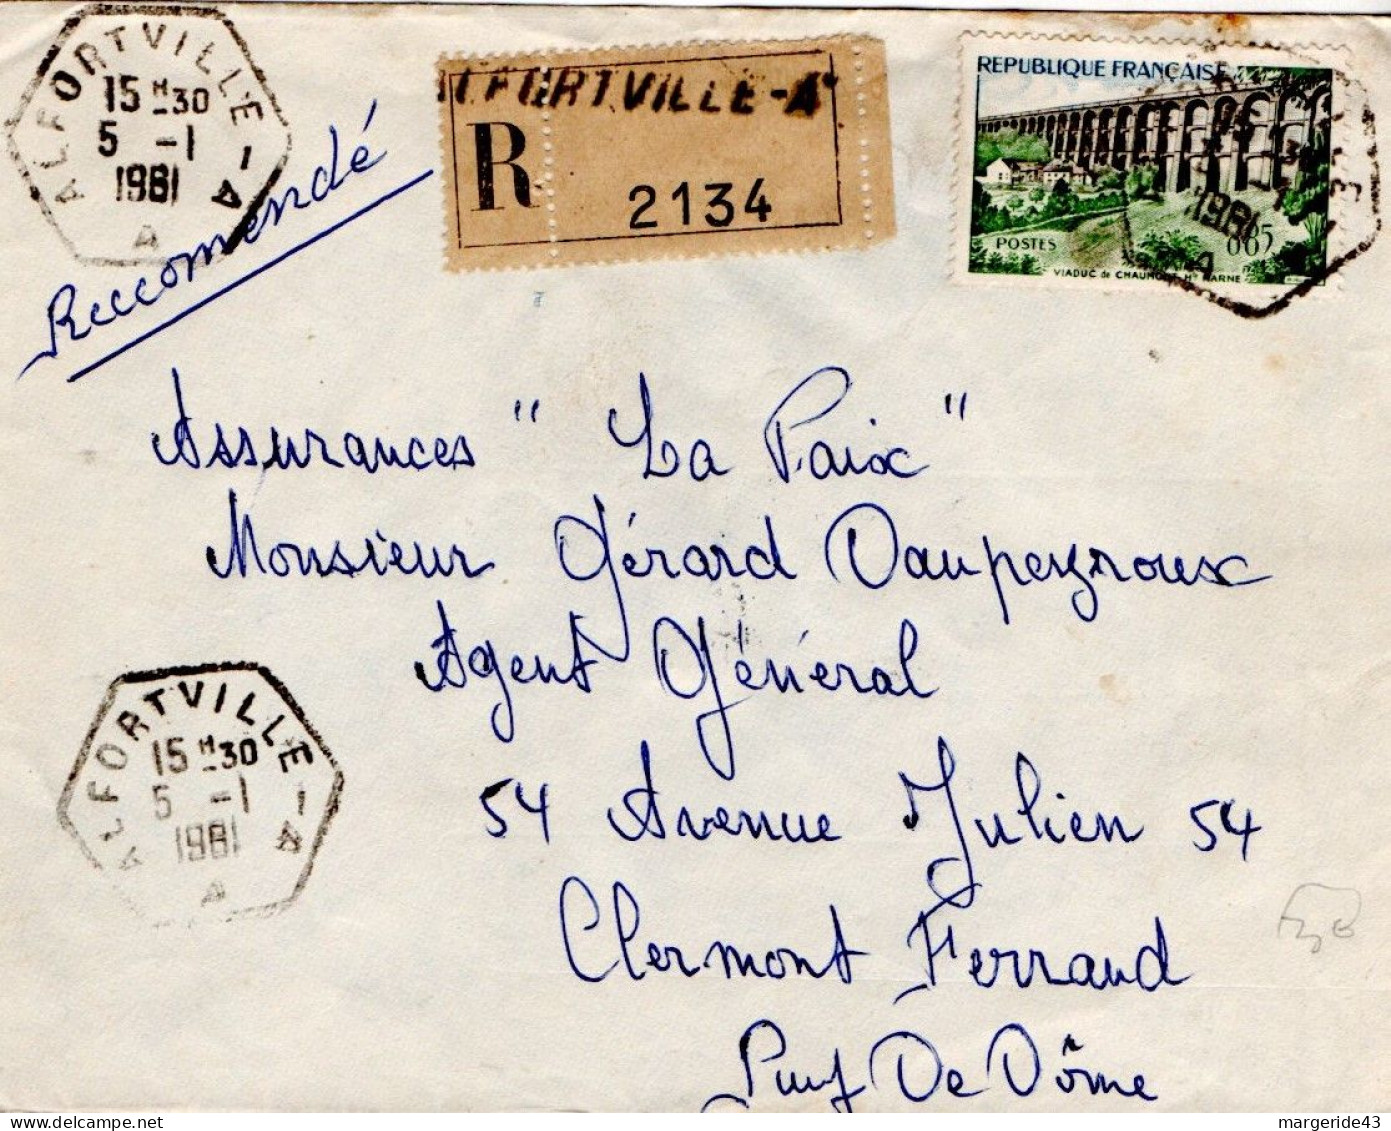 ALFORTVILLE - A
15 H 30
5 -1
1961
A
ALFORTVILLE-A
R
2134
REPUBLIQUE FRANÇAISE
POSTES
0,65
VIADUC de CHAUMONT Hte MARNE
1961
Reccomendé
Assurances "La Paix"
Monsieur Gérard Vaupeyroux
Agent Général
54 Avenue Julien 54
Clermont Ferrand
Puy De Dôme
ALFORTVILLE - A
15 H 30
5 -1
1961
A
margeride43